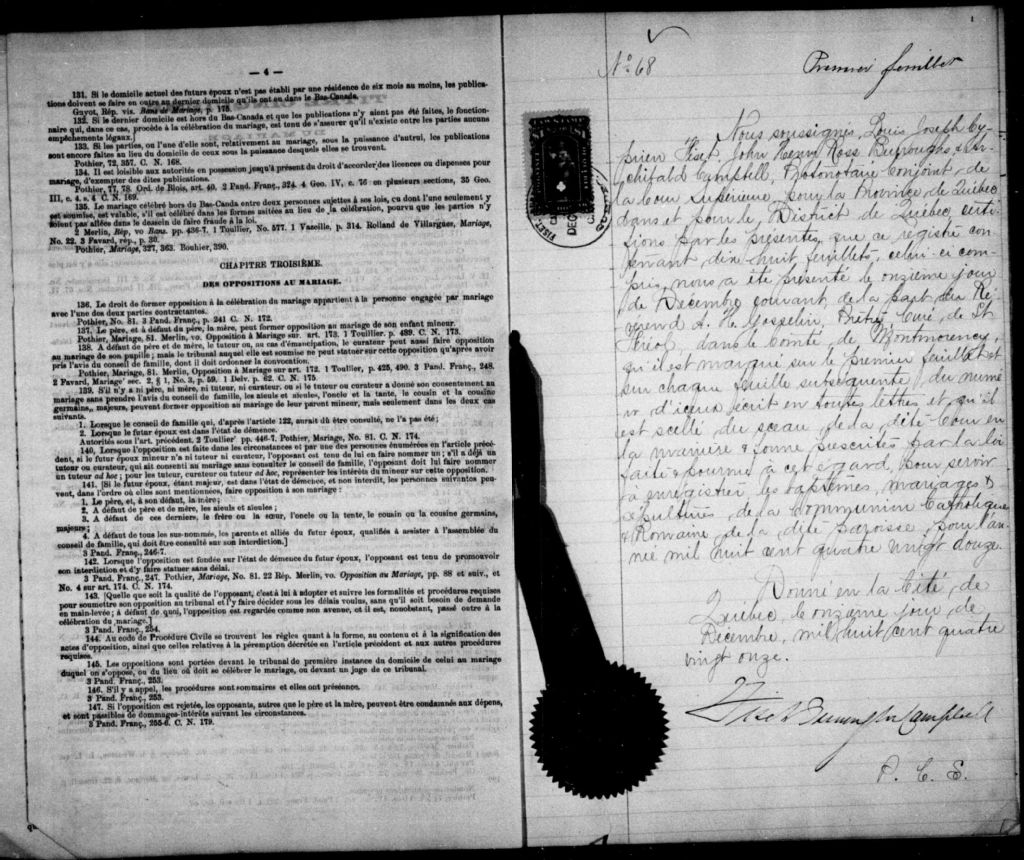 — 4 —
131. Si le domicile actuel des futurs époux n'est pas établi par une résidence de six mois au moins, les publica-
tions doivent se faire en outre au dernier domicile qu'ils ont eu dans le Bas-Canada.
Guyot, Rép. vis. Bans de Mariage, p. 175.
132. Si le dernier domicile est hors du Bas-Canada et que les publications n'y aient pas été faites, le fonction-
naire qui, dans ce cas, procède à la célébration du mariage, est tenu de s'assurer qu'il n'existe entre les parties aucuns
empêchements légaux.
133. Si les parties, ou l'une d'elle sont, relativement au mariage, sous la puissance d'autrui, les publications
sont encore faites au lieu du domicile de ceux sous la puissance desquels elles se trouvent.
Pothier, 72, 357. C. N. 168.
134. Il est loisible aux autorités en possession jusqu'à présent du droit d'accorder des licences ou dispenses pour
mariage, d'exempter des dites publications.
Pothier, 77, 78. Ord. de Blois, art. 40. 2 Pand. Franç., 324. 4 Geo. IV, c. 76 en plusieurs sections, 35 Geo.
III, c. 4. s. 4 C. N. 169.
135. Le mariage célébré hors du Bas-Canada entre deux personnes sujettes à ses lois, ou dont l'une seulement y
est soumise, est valable, s'il est célébré dans les formes usitées au lieu de la célébration, pourvu que les parties n'y
soient pas allées dans le dessein de faire fraude à la loi.
2 Merlin, Rép, vo Bans. pp. 436-7. 1 Toullier, No. 577. 1 Vazeille, p. 314. Rolland de Villargues, Mariage,
No. 22. 3 Favard, rép., p. 30.
Pothier, Mariage, 327, 363. Bouhier, 390.
CHAPITRE TROISIÈME.
DES OPPOSITIONS AU MARIAGE.
136. Le droit de former opposition à la célébration du mariage appartient à la personne engagée par mariage
avec l'une des deux parties contractantes.
Pothier, No. 81. 3 Pand. Franç., p. 241 C. N. 172.
137. Le père, et à défaut du père, la mère, peut former opposition au mariage de son enfant mineur.
Pothier, Mariage, 81. Merlin, vo. Opposition à Mariage sur art. 173. 1 Touillier. p. 489. C. N. 173.
138. A défaut de père et de mère, le tuteur, ou, au cas d'émancipation, le curateur peut aussi faire opposition
au mariage de son pupille ; mais le tribunal auquel elle est soumise ne peut statuer sur cette opposition qu'après avoir
pris l'avis du conseil de famille, dont il doit ordonner la convention.
Pothier, Mariage, 81. Merlin, Opposition à Mariage sur art. 172. 1 Toullier, p. 425, 490. 3 Pand. Franç., 248.
2 Favard, Mariage' sec. 2, § 1, No. 3, p. 59. 1 Delv. p. 62. C. N. 175.
139. S'il n'y a ni père, ni mère, ni tuteur, ni curateur, ou si le tuteur ou curateur a donné son consentement au
mariage sans prendre l'avis du conseil de famille, les aïeuls et aïeules, l'oncle et la tante, le cousin et la cousine
germains,, majeurs, peuvent former opposition au mariage de leur parent mineur, mais seulement dans les deux cas
suivants.
1. Lorsque le conseil de famille qui, d'après l'article 122, aurait dû être consulté, ne l'a pas été ;
2. Lorsque le futur époux est dans l'état de démence.
Autorités sous l'art. précédent. 2 Toullier' pp. 446-7. Pothier, Mariage, No. 81. C. N. 174.
140, Lorsque l'opposition est faite dans les circonstances et par une des personnes énumérées en l'article précé-
dent, si le futur époux mineur n'a ni tuteur ni curateur, l'opposant est tenu de lui en faire nommer un ; s'il a déjà un
tuteur ou curateur, qui ait consenti au mariage sans consulter le conseil de famille, l'opposant doit lui faire nommer
un tuteur ad hoc ; pour les tuteur, curateur ou tuteur ad hoc, représenter les intérêts du mineur sur cette opposition.
141. [Si le futur époux, étant majeur, est dans l'état de démence, et non interdit, les personnes suivantes peu-
vent, dans l'ordre où elles sont mentionnées, faire opposition à son mariage :
1. Le père, et, à son défaut, la mère ;
2. A défaut de père et de mère, les aïeuls et aïeules ;
3. A défaut de ces derniers, le frère ou la sœur, l'oncle ou la tante, le cousin ou la cousine germains,
majeurs ;
4. A défaut de tous les sus-nommés, les parents et alliés du futur époux, qualifiés à assister à l'assemblée du
conseil de famille, qui doit être consulté sur son interdiction.]
3 Pand. Franç., 246-7.
142. Lorsque l'opposition est fondée sur l'état de démence du futur époux, l'opposant est tenu de promouvoir
son interdiction et d'y faire statuer sans délai.
3 Pand. Franç., 247. Pothier, Mariage, No. 81. 22 Rép. Merlin, vo. Opposition au Mariage, pp. 88 et suiv., et
No. 4 sur art. 174. C. N. 174.
143. [Quelle que soit la qualité de l'opposant, c'est à lui à adopter et suivre les formalités et procédures requises
pour soumettre son opposition au tribunal et l'y faire décider sous les délais voulus, sans qu'il soit besoin de demande
en main-levée ; à défaut de quoi, l'opposition est regardée comme non avenue, et il est, nonobstant, passé outre à la
célébration du mariage.]
3 Pand. Franç., 254.
144. Au code de Procédure Civile se trouvent les règles quant à la forme, au contenu et à la signification des
actes d'opposition, ainsi que celles relatives à la péremption décrétée en l'article précédent et aux autres procédures
requises.
145. Les oppositions sont portées devant le tribunal de première instance du domicile de celui au mariage
duquel on s'oppose, ou du lieu où doit se célébrer le mariage, ou devant un juge de ce tribunal.
3 Pand. Franç., 253.
146. S'il y a appel, les procédures sont sommaires et elles ont préséance.
3 Pand. Franç., 253.
147. Si l'opposition est rejetée, les opposants, autres que le père et la mère, peuvent être condamnés aux dépens,
et sont passibles de dommages-intérêts suivant les circonstances.
3 Pand. Franç., 255-6. C. N. 179.
1
No 68
Premier feuillet
Nous soussignés, Louis Joseph Cy-
prien Fiset, John Henri Ross Burroughs & Ar-
chifald Campbell, Protonotaire Conjoint, de
la Cour Supérieure, pour la Province de Québec
dans et pour le District de Québec, certi-
fions par les présentes, que ce registre con-
tenant dix huit feuillets, celui-ci com-
pris, nous a été présenté le onzième jour
de Décembre courant de la part du Ré-
vérend A. H. Gosselin, Prêtre, Curé, de St
Féréol, dans le Comté de Montmorency,
qu'il est marqué sur le premier feuillet et
sur chaque feuille subséquente, du numé-
ro d'iceux écrit en toutes lettres et qu'il
est scellé du sceau de la dite Cour en
la manière & forme prescrites par la loi
faite & pourvue à cet égard, pour servir
à enregistrer les baptêmes, mariages &
sépultures de la Communion Catholique
& Romaine de la dite paroisse, pour l'an-
née mil huit cent quatre vingt douze.
Donné en la Cité, de
Québec le onzième jour de
Décembre, mil huit cent quatre
vingt onze.
Fiset Burroughs Campbell
P. C. S.